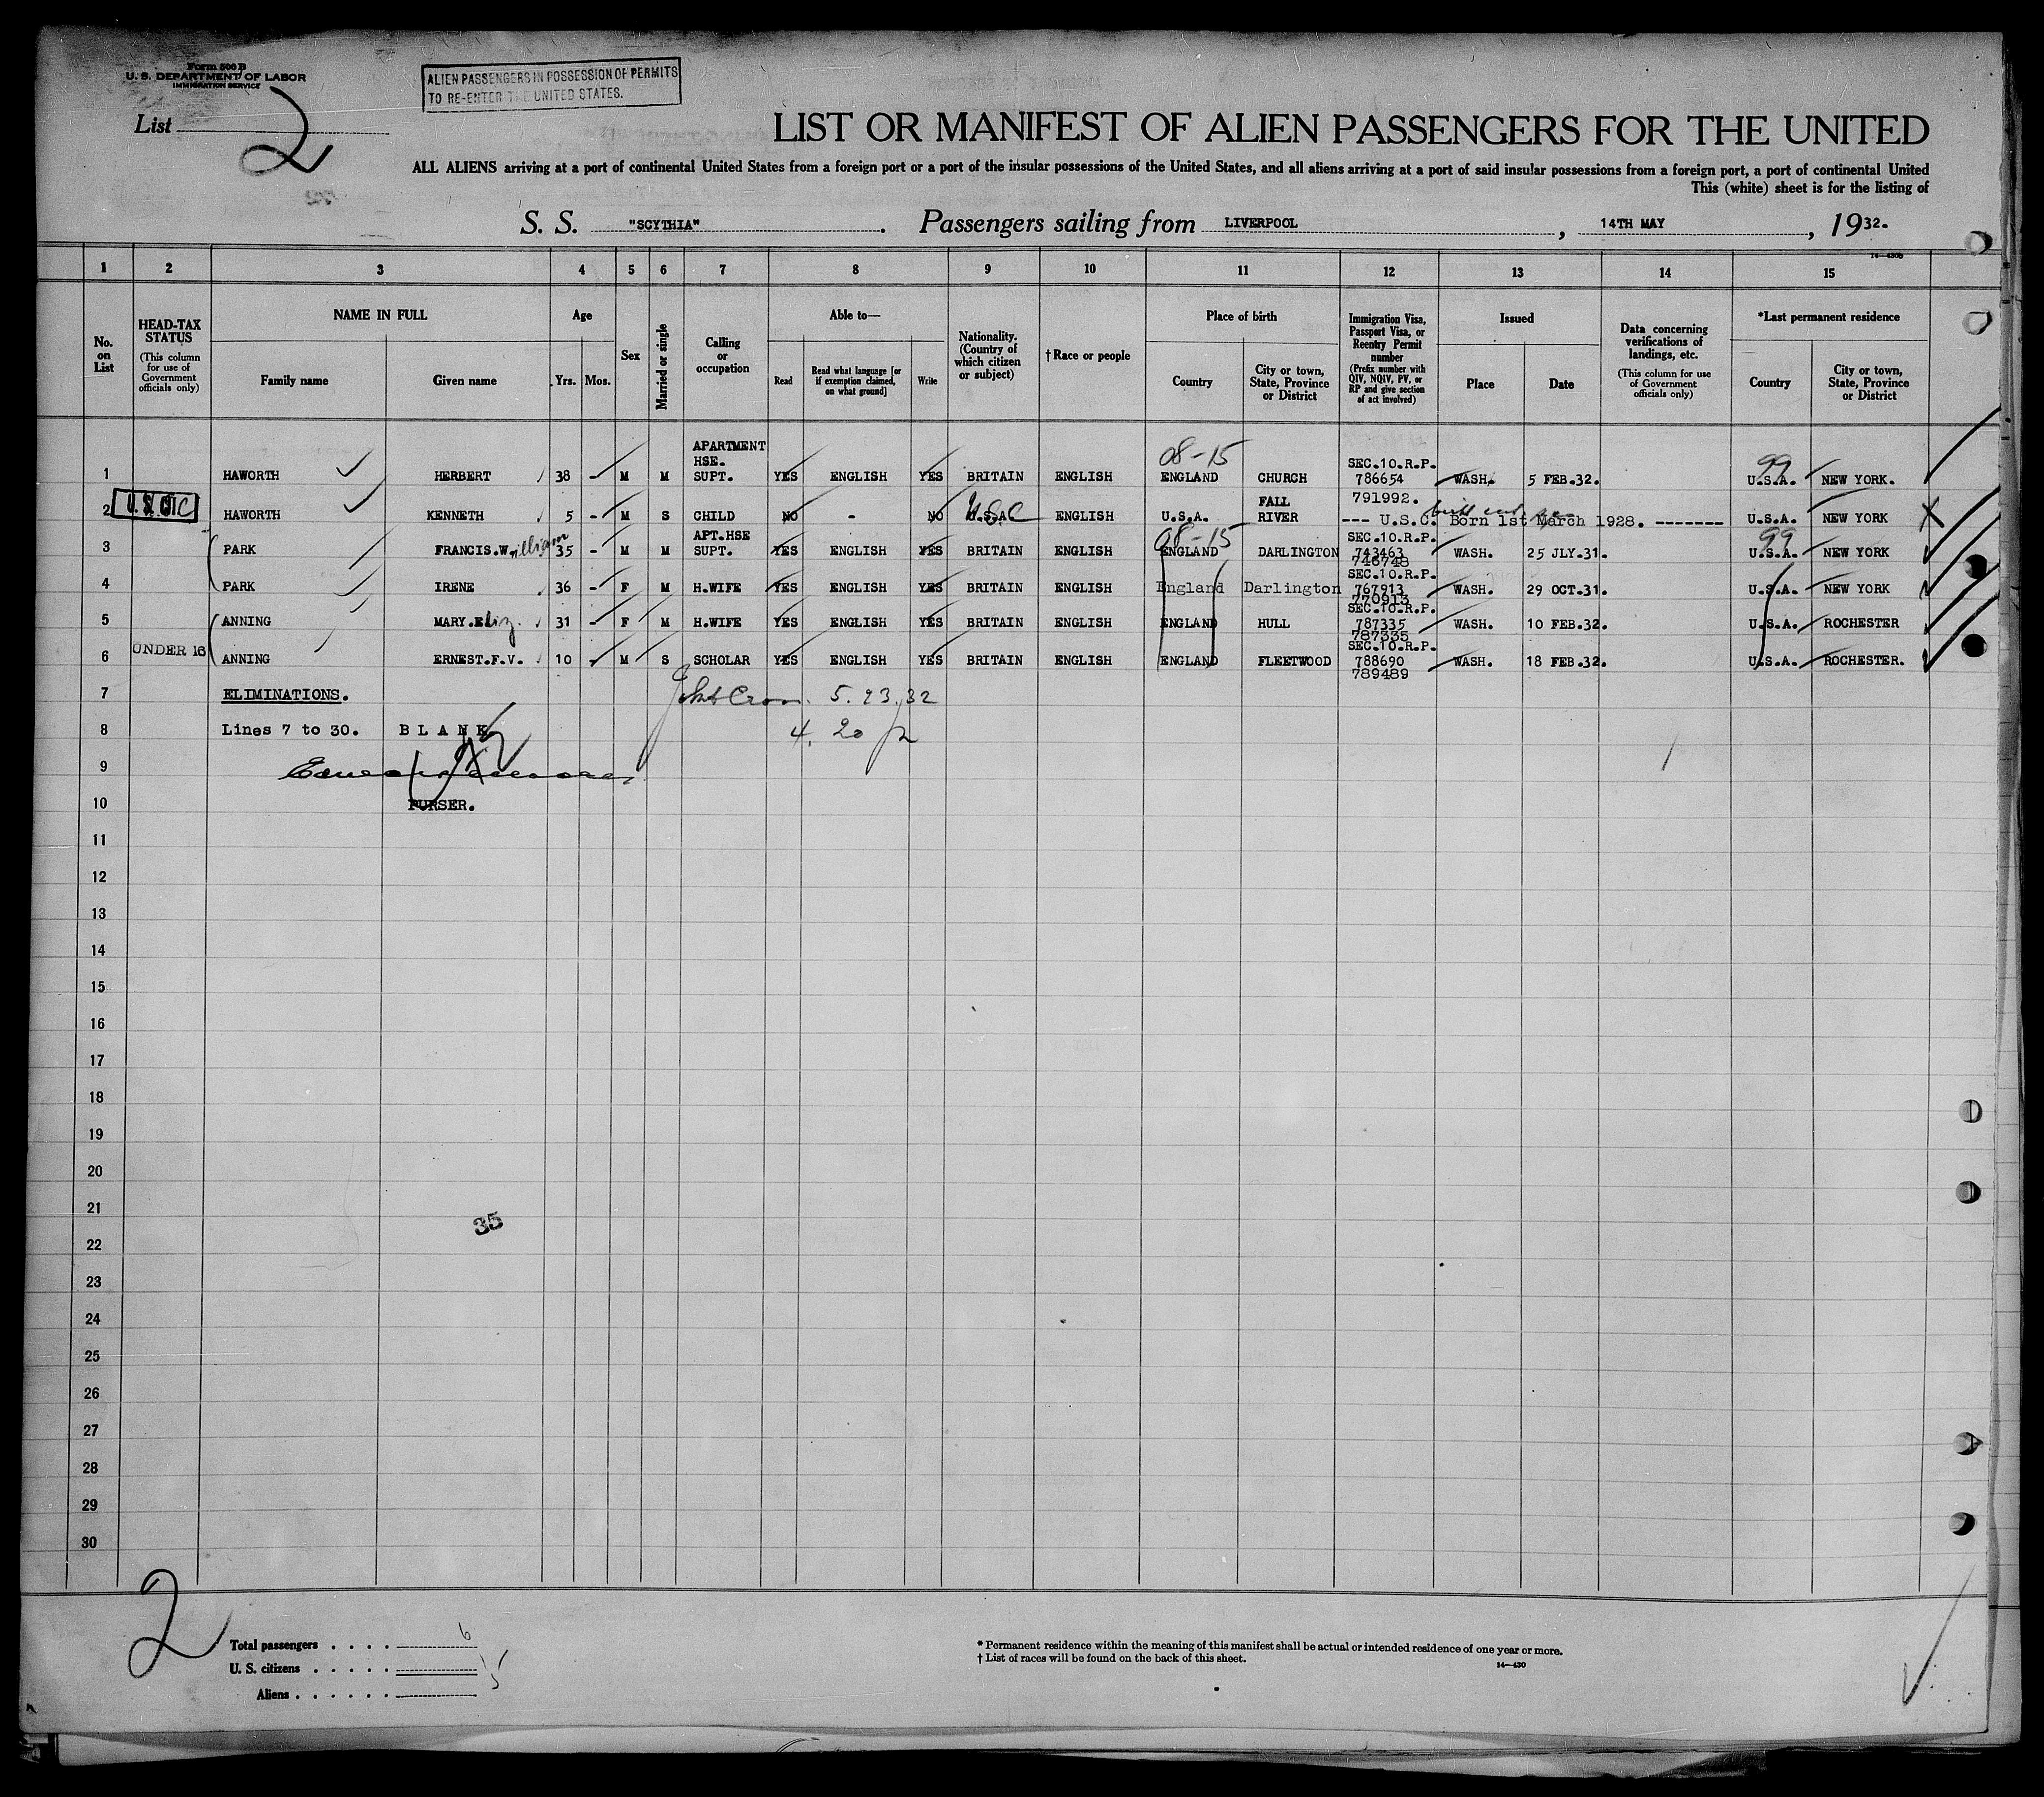 Form 500 B
U. S. DEPARTMENT OF LABOR
IMMIGRATION SERVICE
ALIEN PASSENGERS IN POSSESSION OF PERMITS
TO RE-ENTER THE UNITED STATES.
List 2
LIST OR MANIFEST OF ALIEN PASSENGERS FOR THE UNITED
ALL ALIENS arriving at a port of continental United States from a foreign port or a port of the insular possessions of the United States, and all aliens arriving at a port of said insular possessions from a foreign port, a port of continental United
This (white) sheet is for the listing of
S. S. "SCYTHIA". Passengers sailing from LIVERPOOL, 14TH MAY, 1932.
14—430B
1 2 3 4 5 6 7 8 9 10 11 12 13 14 15
No. on List
HEAD-TAX STATUS (This column for use of Government officials only)
NAME IN FULL
Family name
Given name
Age
Yrs. Mos.
Sex
Married or single
Calling or occupation
Able to—
Read
Read what language [or if exemption claimed, on what ground]
Write
Nationality. (Country of which citizen or subject)
†Race or people
Place of birth
Country
City or town, State, Province or District
Immigration Visa, Passport Visa, or Reentry Permit number (Prefix number with QIV, NQIV, PV, or RP and give section of act involved)
Issued
Place
Date
Data concerning verifications of landings, etc. (This column for use of Government officials only)
*Last permanent residence
Country
City or town, State, Province or District
08-15 99
1 HAWORTH HERBERT 38 - M M APARTMENT HSE. SUPT. YES ENGLISH YES BRITAIN ENGLISH ENGLAND CHURCH SEC.10.R.P. 786654 WASH. 5 FEB.32. U.S.A. NEW YORK.
791992.
2 HAWORTH KENNETH 5 - M S CHILD NO - NO U.S.A. USC ENGLISH U.S.A. FALL RIVER --- U.S.C. Born 1st March 1928. ------- U.S.A. NEW YORK X
08-15 99
3 PARK FRANCIS.William 35 - M M APT.HSE SUPT. YES ENGLISH YES BRITAIN ENGLISH ENGLAND DARLINGTON SEC.10.R.P. 743463 WASH. 25 JLY.31. U.S.A. NEW YORK
746748
4 PARK IRENE 36 - F M H.WIFE YES ENGLISH YES BRITAIN ENGLISH England Darlington SEC.10.R.P. 767913 WASH. 29 OCT.31. U.S.A. NEW YORK
770913
5 ANNING MARY.Eliz. 31 - F M H.WIFE YES ENGLISH YES BRITAIN ENGLISH ENGLAND HULL SEC.10.R.P. 787335 WASH. 10 FEB.32. U.S.A. ROCHESTER
787335
6 UNDER 16 ANNING ERNEST.F.V. 10 - M S SCHOLAR YES ENGLISH YES BRITAIN ENGLISH ENGLAND FLEETWOOD SEC.10.R.P. 788690 WASH. 18 FEB.32. U.S.A. ROCHESTER.
789489
7 ELIMINATIONS. 5.23.32
8 Lines 7 to 30. BLANK 4.20 p
9
10 PURSER.
11
12
13
14
15
16
17
18
19
20
21
35
22
23
24
25
26
27
28
29
30
2
Total passengers . . . . 6
U. S. citizens . . . . . 1
Aliens . . . . . . 5
* Permanent residence within the meaning of this manifest shall be actual or intended residence of one year or more.
† List of races will be found on the back of this sheet.
14—430